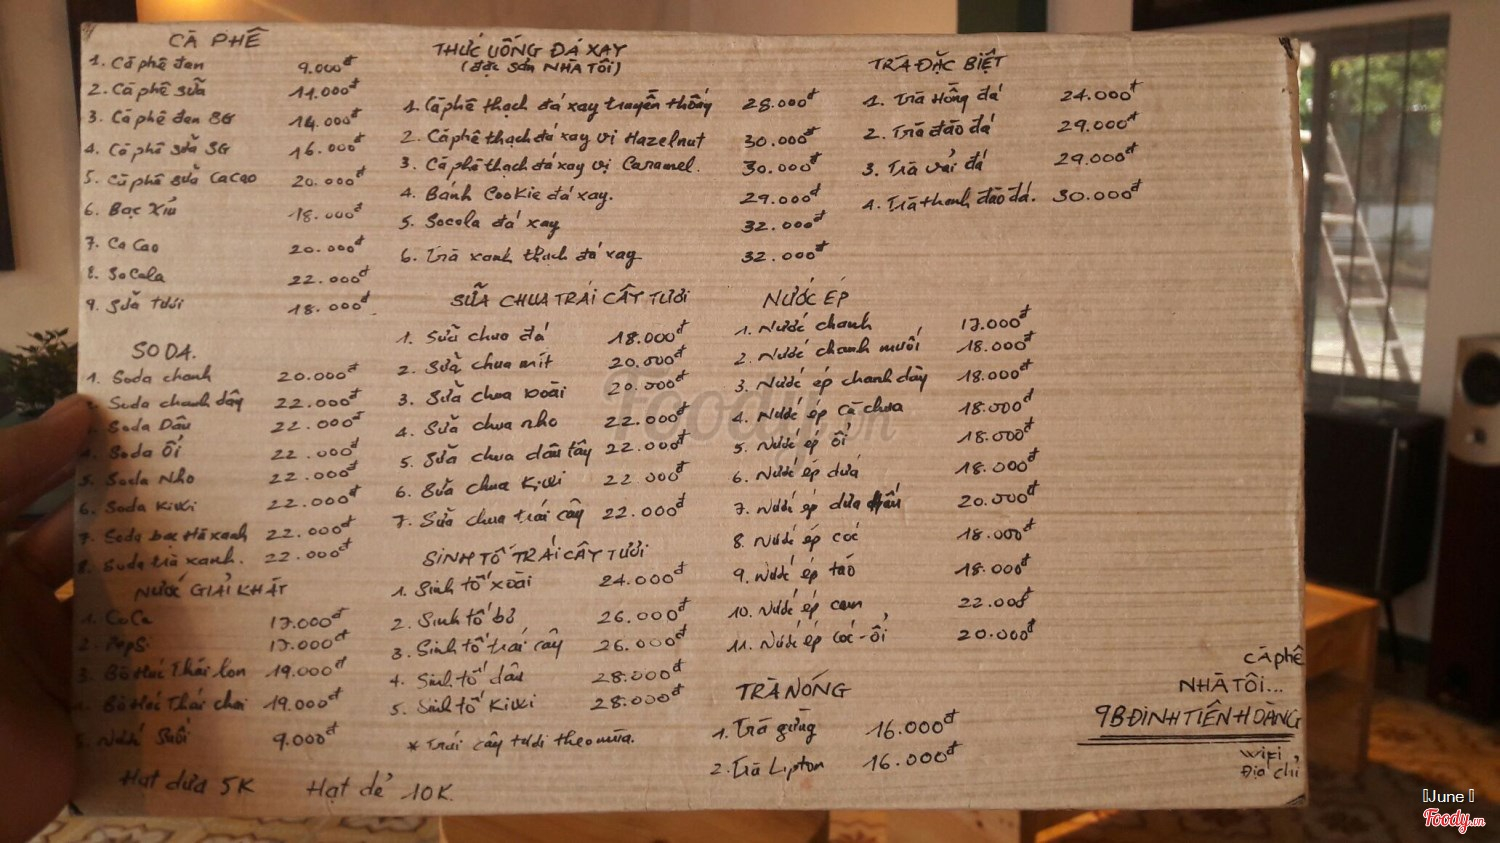 CÀ PHÊ
1. Cà phê đen 9.000đ
2. Cà phê sữa 11.000đ
3. Cà phê đen SG 14.000đ
4. Cà phê sữa SG 16.000đ
5. Cà phê sữa Cacao 20.000đ
6. Bạc Xỉu 18.000đ
7. Ca Cao 20.000đ
8. Socola 22.000đ
9. Sữa tươi 18.000đ
SODA.
1. Soda chanh 20.000đ
Soda chanh dây 22.000đ
Soda Dâu 22.000đ
4. Soda Ổi 22.000đ
5. Soda Nho 22.000đ
6. Soda Kiwi 22.000đ
7. Soda bạc Hà xanh 22.000đ
8. Soda trà xanh. 22.000đ
NƯỚC GIẢI KHÁT
1. CoCa 17.000đ
2. Pepsi 17.000đ
3. Bò Húc Thái lon 19.000đ
4. Bò Húc Thái chai 19.000đ
5. Nước Suối 9.000đ
Hạt dưa 5K Hạt dẻ 10K
THỨC UỐNG ĐÁ XAY
(Đặc sản NHÀ TÔI)
1. Cà phê thạch đá xay truyền thống 28.000đ
2. Cà phê thạch đá xay vị Hazelnut 30.000đ
3. Cà phê thạch đá xay vị Caramel. 30.000đ
4. Bánh Cookie đá xay. 29.000đ
5. Socola đá xay 32.000đ
6. Trà xanh thạch đá xay 32.000đ
SỮA CHUA TRÁI CÂY TƯƠI
1. Sữa chua đá 18.000đ
2. Sữa chua mít 20.000đ
3. Sữa chua xoài 20.000đ
4. Sữa chua nho 22.000đ
5. Sữa chua dâu tây 22.000đ
6. Sữa chua Kiwi 22 000đ
7. Sữa chua trái cây 22.000đ
SINH TỐ TRÁI CÂY TƯƠI
1. Sinh tố xoài 24.000đ
2. Sinh tố bơ 26.000đ
3. Sinh tố trái cây 26.000đ
4. Sinh tố dâu 28.000đ
5. Sinh tố Kiwi 28.000đ
* Trái cây tươi theo mùa.
TRÀ ĐẶC BIỆT
1. Trà Hồng đá 24.000đ
2. Trà đào đá 29.000đ
3. Trà vải đá 29.000đ
4. Trà thanh đào đá. 30.000đ
NƯỚC ÉP
1. Nước chanh 17.000đ
2. Nước chanh muối 18.000đ
3. Nước ép chanh dây 18.000đ
4. Nước ép cà chua 18.000đ
5. Nước ép ổi 18.000đ
6. Nước ép dứa 18.000đ
7. Nước ép dưa hấu 20.000đ
8. Nước ép cóc 18.000đ
9. Nước ép táo 18.000đ
10. Nước ép cam 22.000đ
11. Nước ép cóc-ổi 20.000đ
TRÀ NÓNG
1. Trà gừng 16.000đ
2. Trà Lipton 16.000đ
CÀ phê
NHÀ TÔI...
9B ĐINH TIÊN HOÀNG
WiFi
Địa chỉ
Foody.vn
June
Foody.vn